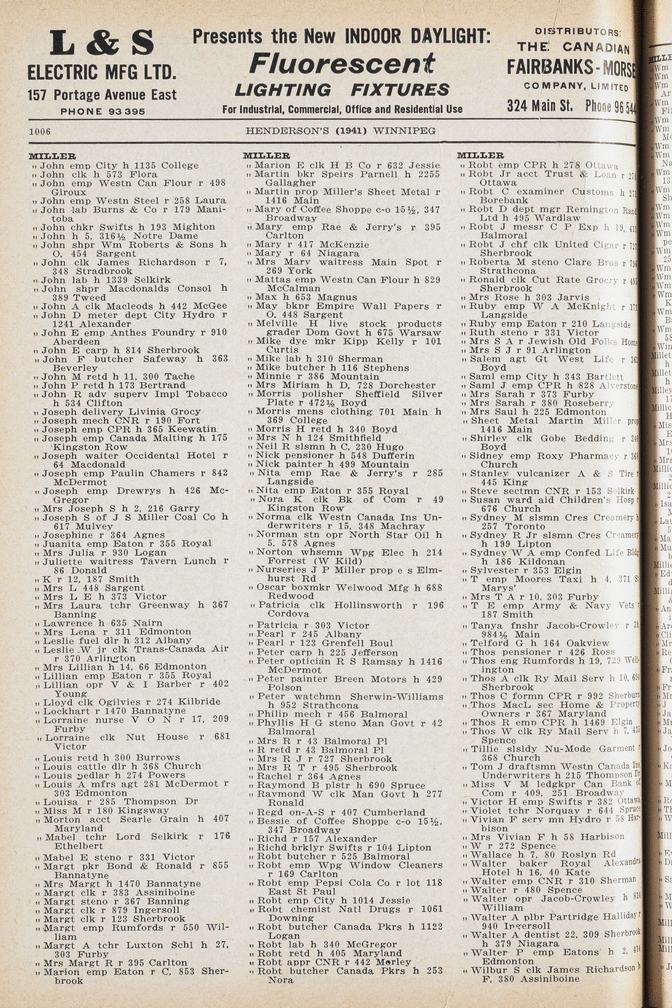 L & S
ELECTRIC MFG LTD.
157 Portage Avenue East
PHONE 93 395
Presents the New INDOOR DAYLIGHT:
Fluorescent
LIGHTING FIXTURES
For Industrial, Commercial, Office and Residential Use
DISTRIBUTORS:
THE CANADIAN
FAIRBANKS-MORSE
COMPANY, LIMITED
324 Main St. Phone 96 544
1006
HENDERSON'S (1941) WINNIPEG
MILLER
" John emp City h 1135 College
" John clk h 573 Flora
" John emp Westn Can Flour r 498
Giroux
" John emp Westn Steel r 258 Laura
" John lab Burns & Co r 179 Mani-
toba
" John chkr Swifts h 193 Mighton
" John h 5, 316½ Notre Dame
" John shpr Wm Roberts & Sons h
O, 454 Sargent
" John clk James Richardson r 7,
348 Stradbrook
" John lab h 1339 Selkirk
" John shpr Macdonalds Consol h
389 Tweed
" John A clk Macleods h 442 McGee
" John D meter dept City Hydro r
1241 Alexander
" John E emp Anthes Foundry r 910
Aberdeen
" John E carp h 814 Sherbrook
" John F butcher Safeway h 363
Beverley
" John M retd h 11, 300 Tache
" John P retd h 173 Bertrand
" John R adv superv Impl Tobacco
h 534 Clifton
" Joseph delivery Livinia Grocy
" Joseph mech CNR r 190 Fort
" Joseph emp CPR h 365 Keewatin
" Joseph emp Canada Malting h 175
Kingston Row
" Joseph waiter Occidental Hotel r
64 Macdonald
" Joseph emp Paulin Chamers r 842
McDermot
" Joseph emp Drewrys h 426 Mc-
Gregor
" Mrs Joseph S h 2, 216 Garry
" Joseph S of J S Miller Coal Co h
617 Mulvey
" Josephine r 364 Agnes
" Juanita emp Eaton r 355 Royal
" Mrs Julia r 930 Logan
" Juliette waitress Tavern Lunch r
86 Donald
" K r 12, 187 Smith
" Mrs L 448 Sargent
" Mrs L E h 373 Victor
" Mrs Laura tchr Greenway h 367
Banning
" Lawrence h 635 Nairn
" Mrs Lena r 311 Edmonton
" Leslie fuel dlr h 312 Albany
" Leslie W jr clk Trans-Canada Air
r 370 Arlington
" Mrs Lillian h 14, 66 Edmonton
" Lillian emp Eaton r 355 Royal
" Lillian opr V & I Barber r 402
Young
" Lloyd clk Ogilvies r 274 Kilbride
" Lockhart r 1470 Bannatyne
" Lorraine nurse V O N r 17, 209
Furby
" Lorraine clk Nut House r 681
Victor
" Louis retd h 300 Burrows
" Louis cattle dlr h 368 Church
" Louis pedlar h 274 Powers
" Louis A mfrs agt 281 McDermot r
303 Edmonton
" Louisa r 285 Thompson Dr
" Miss M r 180 Kingsway
" Morton acct Searle Grain h 407
Maryland
" Mabel tchr Lord Selkirk r 176
Ethelbert
" Mabel E steno r 331 Victor
" Margt pkr Bond & Ronald r 855
Bannatyne
" Mrs Margt h 1470 Bannatyne
" Margt clk r 383 Assiniboine
" Margt steno r 367 Banning
" Margt clk r 879 Ingersoll
" Margt clk r 123 Sherbrook
" Margt emp Rumfords r 550 Wil-
liam
" Margt A tchr Luxton Schl h 27,
303 Furby
" Mrs Margt R r 395 Carlton
" Marion emp Eaton r C, 853 Sher-
brook
MILLER
" Marion E clk H B Co r 632 Jessie
" Martin bkr Speirs Parnell h 2255
Gallagher
" Martin prop Miller's Sheet Metal r
1416 Main
" Mary of Coffee Shoppe c-o 15½, 347
Broadway
" Mary emp Rae & Jerry's r 395
Carlton
" Mary r 417 McKenzie
" Mary r 64 Niagara
" Mrs Mary waitress Main Spot r
269 York
" Mattas emp Westn Can Flour h 829
McCalman
" Max h 653 Magnus
" May bkpr Empire Wall Papers r
O, 448 Sargent
" Melville H live stock products
grader Dom Govt h 675 Warsaw
" Mike dye mkr Kipp Kelly r 101
Curtis
" Mike lab h 310 Sherman
" Mike butcher h 116 Stephens
" Minnie r 386 Mountain
" Mrs Miriam h D, 728 Dorchester
" Morris polisher Sheffield Silver
Plate r 472½ Boyd
" Morris mens clothing 701 Main h
369 College
" Morris H retd h 340 Boyd
" Mrs N h 124 Smithfield
" Neil R slsmn h C, 230 Hugo
" Nick pensioner h 548 Dufferin
" Nick painter h 499 Mountain
" Nita emp Rae & Jerry's r 285
Langside
" Nita emp Eaton r 355 Royal
" Nora K clk Bk of Com r 49
Kingston Row
" Norma clk Westn Canada Ins Un-
derwriters r 15, 348 Machray
" Norman stn opr North Star Oil h
5, 578 Agnes
" Norton whsemn Wpg Elec h 214
Forrest (W Kild)
" Nurseries J P Miller prop e s Elm-
hurst Rd
" Oscar boxmkr Welwood Mfg h 688
Redwood
" Patricia clk Hollinsworth r 196
Cordova
" Patricia r 303 Victor
" Pearl r 245 Albany
" Pearl r 123 Grenfell Boul
" Peter carp h 225 Jefferson
" Peter optician R S Ramsay h 1416
McDermot
" Peter painter Breen Motors h 429
Polson
" Peter watchmn Sherwin-Williams
h 952 Strathcona
" Philip mech r 456 Balmoral
" Phyllis H G steno Man Govt r 42
Balmoral
" Mrs R r 43 Balmoral Pl
" R retd r 43 Balmoral Pl
" Mrs R J r 727 Sherbrook
" Mrs R T r 495 Sherbrook
" Rachel r 364 Agnes
" Raymond B plstr h 690 Spruce
" Raymond W clk Man Govt h 277
Ronald
" Regd on-A-S r 407 Cumberland
" Bessie of Coffee Shoppe c-o 15½,
347 Broadway
" Richd r 157 Alexander
" Richd brklyr Swifts r 104 Lipton
" Robt butcher r 525 Balmoral
" Robt emp Wpg Window Cleaners
r 169 Carlton
" Robt emp Pepsi Cola r lot 118
East St Paul
" Robt emp City h 1014 Jessie
" Robt chemist Natl Drugs r 1061
Downing
" Robt butcher Canada Pkrs h 1122
Logan
" Robt lab h 340 McGregor
" Robt retd h 405 Maryland
" Robt appr CNR r 442 Morley
" Robt butcher Canada Pkrs h 253
Nora
MILLER
" Robt emp CPR h 278 Ottawa
" Robt Jr acct Trust & Loan r
Ottawa
" Robt C examiner Customs h
Borebank
" Robt D dept mgr Remington Rand
Ltd h 495 Wardlaw
" Robt J messr C P Exp h 19,
Balmoral
" Robt J chf clk United Cigar r
Sherbrook
" Roberta M steno Clare Bros r
Strathcona
" Ronald clk Cut Rate Grocry r
Sherbrook
" Mrs Rose h 303 Jarvis
" Ruby emp W A McKnight r
Langside
" Ruby emp Eaton r 210 Langside
" Ruth steno r 331 Victor
" Mrs S A r Jewish Old Folks Home
" Mrs S J r 91 Arlington
" Salem agt Gt West Life r
Boyd
" Saml emp City h 343 Bartlett
" Saml J emp CPR h 828 Alverstone
" Mrs Sarah r 373 Furby
" Mrs Sarah r 380 Roseberry
" Mrs Saul h 225 Edmonton
" Sheet Metal Martin Miller prop
1416 Main
" Shirley clk Gobe Bedding r
Boyd
" Sidney emp Roxy Pharmacy r
Church
" Stanley vulcanizer A & S Tire
445 King
" Steve sectmn CNR r 153 Selkirk
" Susan ward aid Children's Hosp
676 Church
" Sydney M slsmn Cres Creamery
257 Toronto
" Sydney R Jr slsmn Cres Creamery
h 199 Lipton
" Sydney W A emp Confed Life Bldg
h 186 Kildonan
" Sylvester r 353 Elgin
" T emp Moores Taxi h 4, 371 St
Marys'
" Mrs T A r 10, 303 Furby
" T E emp Army & Navy Vets
187 Smith
" Tanya fnshr Jacob-Crowley r
984½ Main
" Telford G h 164 Oakview
" Thos pensioner r 426 Ross
" Thos eng Rumfords h 19, 729 Well-
ington
" Thos A clk Ry Mail Serv h 10,
Sherbrook
" Thos C formn CPR r 992 Sherburn
" Thos MacL sec Home & Property
Owners r 367 Maryland
" Thos R emp CPR h 1469 Elgin
" Thos W clk Ry Mail Serv h 7,
Spence
" Tillie slsldy Nu-Mode Garment
368 Church
" Tom J draftsmn Westn Canada Ins
Underwriters h 215 Thompson Dr
" Miss V M ledgkpr Can Bank of
Com r 409, 251 Broadway
" Victor H emp Swifts r 382 Ottawa
" Violet tchr Norquay r 644 Spruce
" Vivian F serv mn Hydro r 58 Har-
bison
" Mrs Vivian F h 58 Harbison
" W r 272 Spence
" Wallace h 7, 80 Roslyn Rd
" Walter baker Royal Alexandra
Hotel h 16, 40 Kate
" Walter emp CNR r 310 Sherman
" Walter r 480 Spence
" Walter opr Jacob-Crowley h
William
" Walter A plbr Partridge Halliday r
940 Ingersoll
" Walter A dentist 22, 309 Sherbrook
h 379 Niagara
" Walter P emp Eatons h 2,
Edmonton
" Wilbur S clk James Richardson h
F, 380 Assiniboine